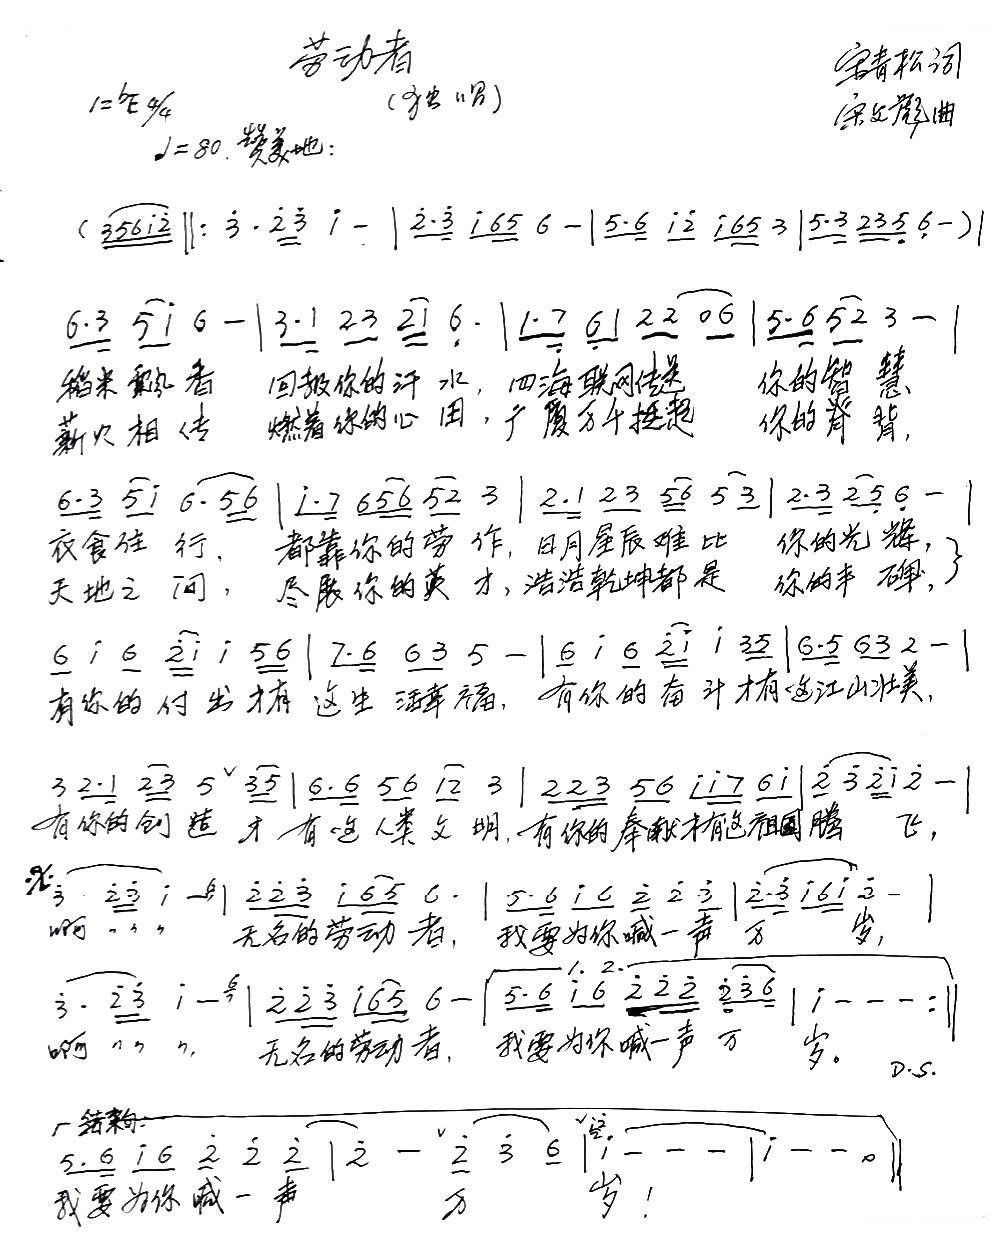 劳动者
(独唱)
宋青松词
宋文彪曲
1=♭E 4/4
♩=80 赞美地:
(356i2 ‖: 3·23 i - | 2·3 i65 6 - | 5·6 i2 i65 3 | 5·3 235 6 -) |
6·3 5i 6 - | 3·1 23 21 6· | 1·7 61 22 06 | 5·6 52 3 - |
稻米飘香 回报你的汗水, 四海联网传送 你的智慧,
薪火相传 燃着你的心田, 广厦万千挺起 你的脊背,
6·3 5i 6·56 | i·7 656 52 3 | 2·1 23 56 53 | 2·3 25 6 - |
衣食住行, 都靠你的劳作, 日月星辰难比 你的光辉,
天地之间, 尽展你的英才, 浩浩乾坤都是 你的丰碑, }
6 i 6 2i i 56 | 7·6 63 5 - | 6 i 6 2i i 35 | 6·5 63 2 - |
有你的付出才有这生活幸福, 有你的奋斗才有这江山壮美,
3 2·1 23 5 ˅ 35 | 6·6 56 i2 3 | 223 56 ii7 6i | 2 3 2i 2 - |
有你的创造 才有这人类文明, 有你的奉献才有这祖国腾 飞,
3 23 i - 6 | 223 i65 6· | 5·6 i6 2 2 3 | 2·3 i6i 2 - |
啊 〃〃〃 无名的劳动者, 我要为你喊一声 万 岁,
3· 23 i - 6 | 223 i65 6 - | 1. 2. 5·6 i6 222 236 | i - - - :‖
啊 〃〃〃, 无名的劳动者, 我要为你喊一声 万 岁。 D.S.
结束句:
5·6 i6 2 2 2 | 2 - ˅ 2 3 6 | ˅ i - - - | i - - 0 ‖
我要为你喊一声 万 岁!